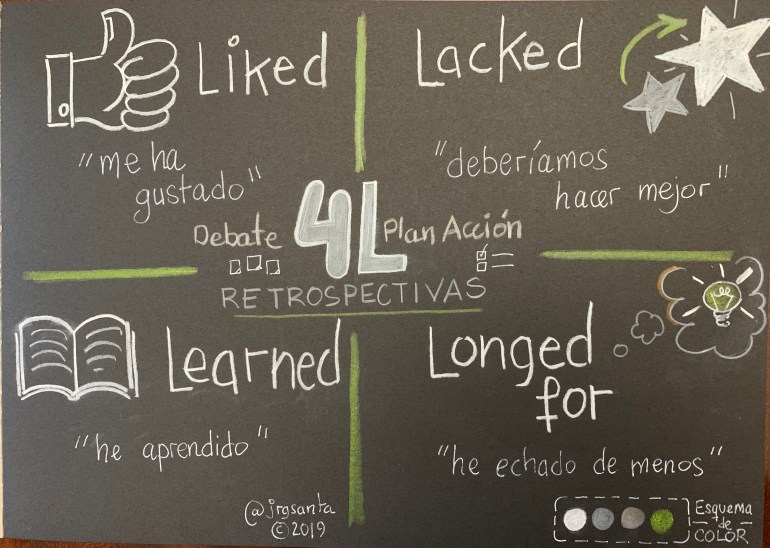 Liked
"me ha
gustado"
Lacked
"deberíamos
hacer mejor"
Debate 4L Plan Acción
RETROSPECTIVAS
Learned
"he aprendido"
Longed
for
"he echado de menos"
@jrgsanta
©2019
Esquema
de
COLOR